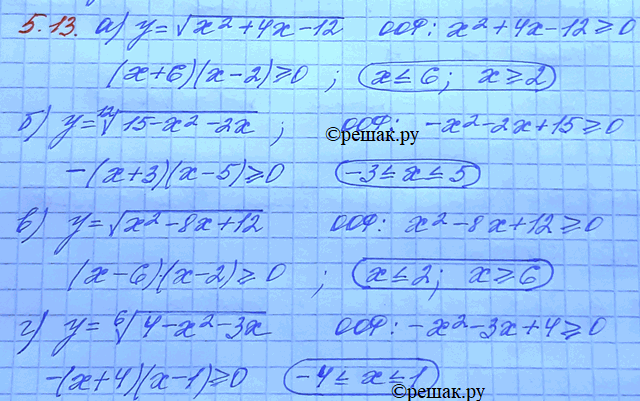 5.13. а) y=√x²+4x-12 ООФ: x²+4x-12≥0
(x+6)(x-2)≥0 ; x≤6; x≥2
б) y=¹²√15-x²-2x ; ООФ: -x²-2x+15≥0
©решак.ру
-(x+3)(x-5)≥0 -3≤x≤5
в) y=√x²-8x+12 ООФ: x²-8x+12≥0
(x-6)·(x-2)≥0 ; x≤2; x≥6
г) y=⁶√4-x²-3x ООФ: -x²-3x+4≥0
-(x+4)(x-1)≥0 -4≤x≤1
©решак.ру